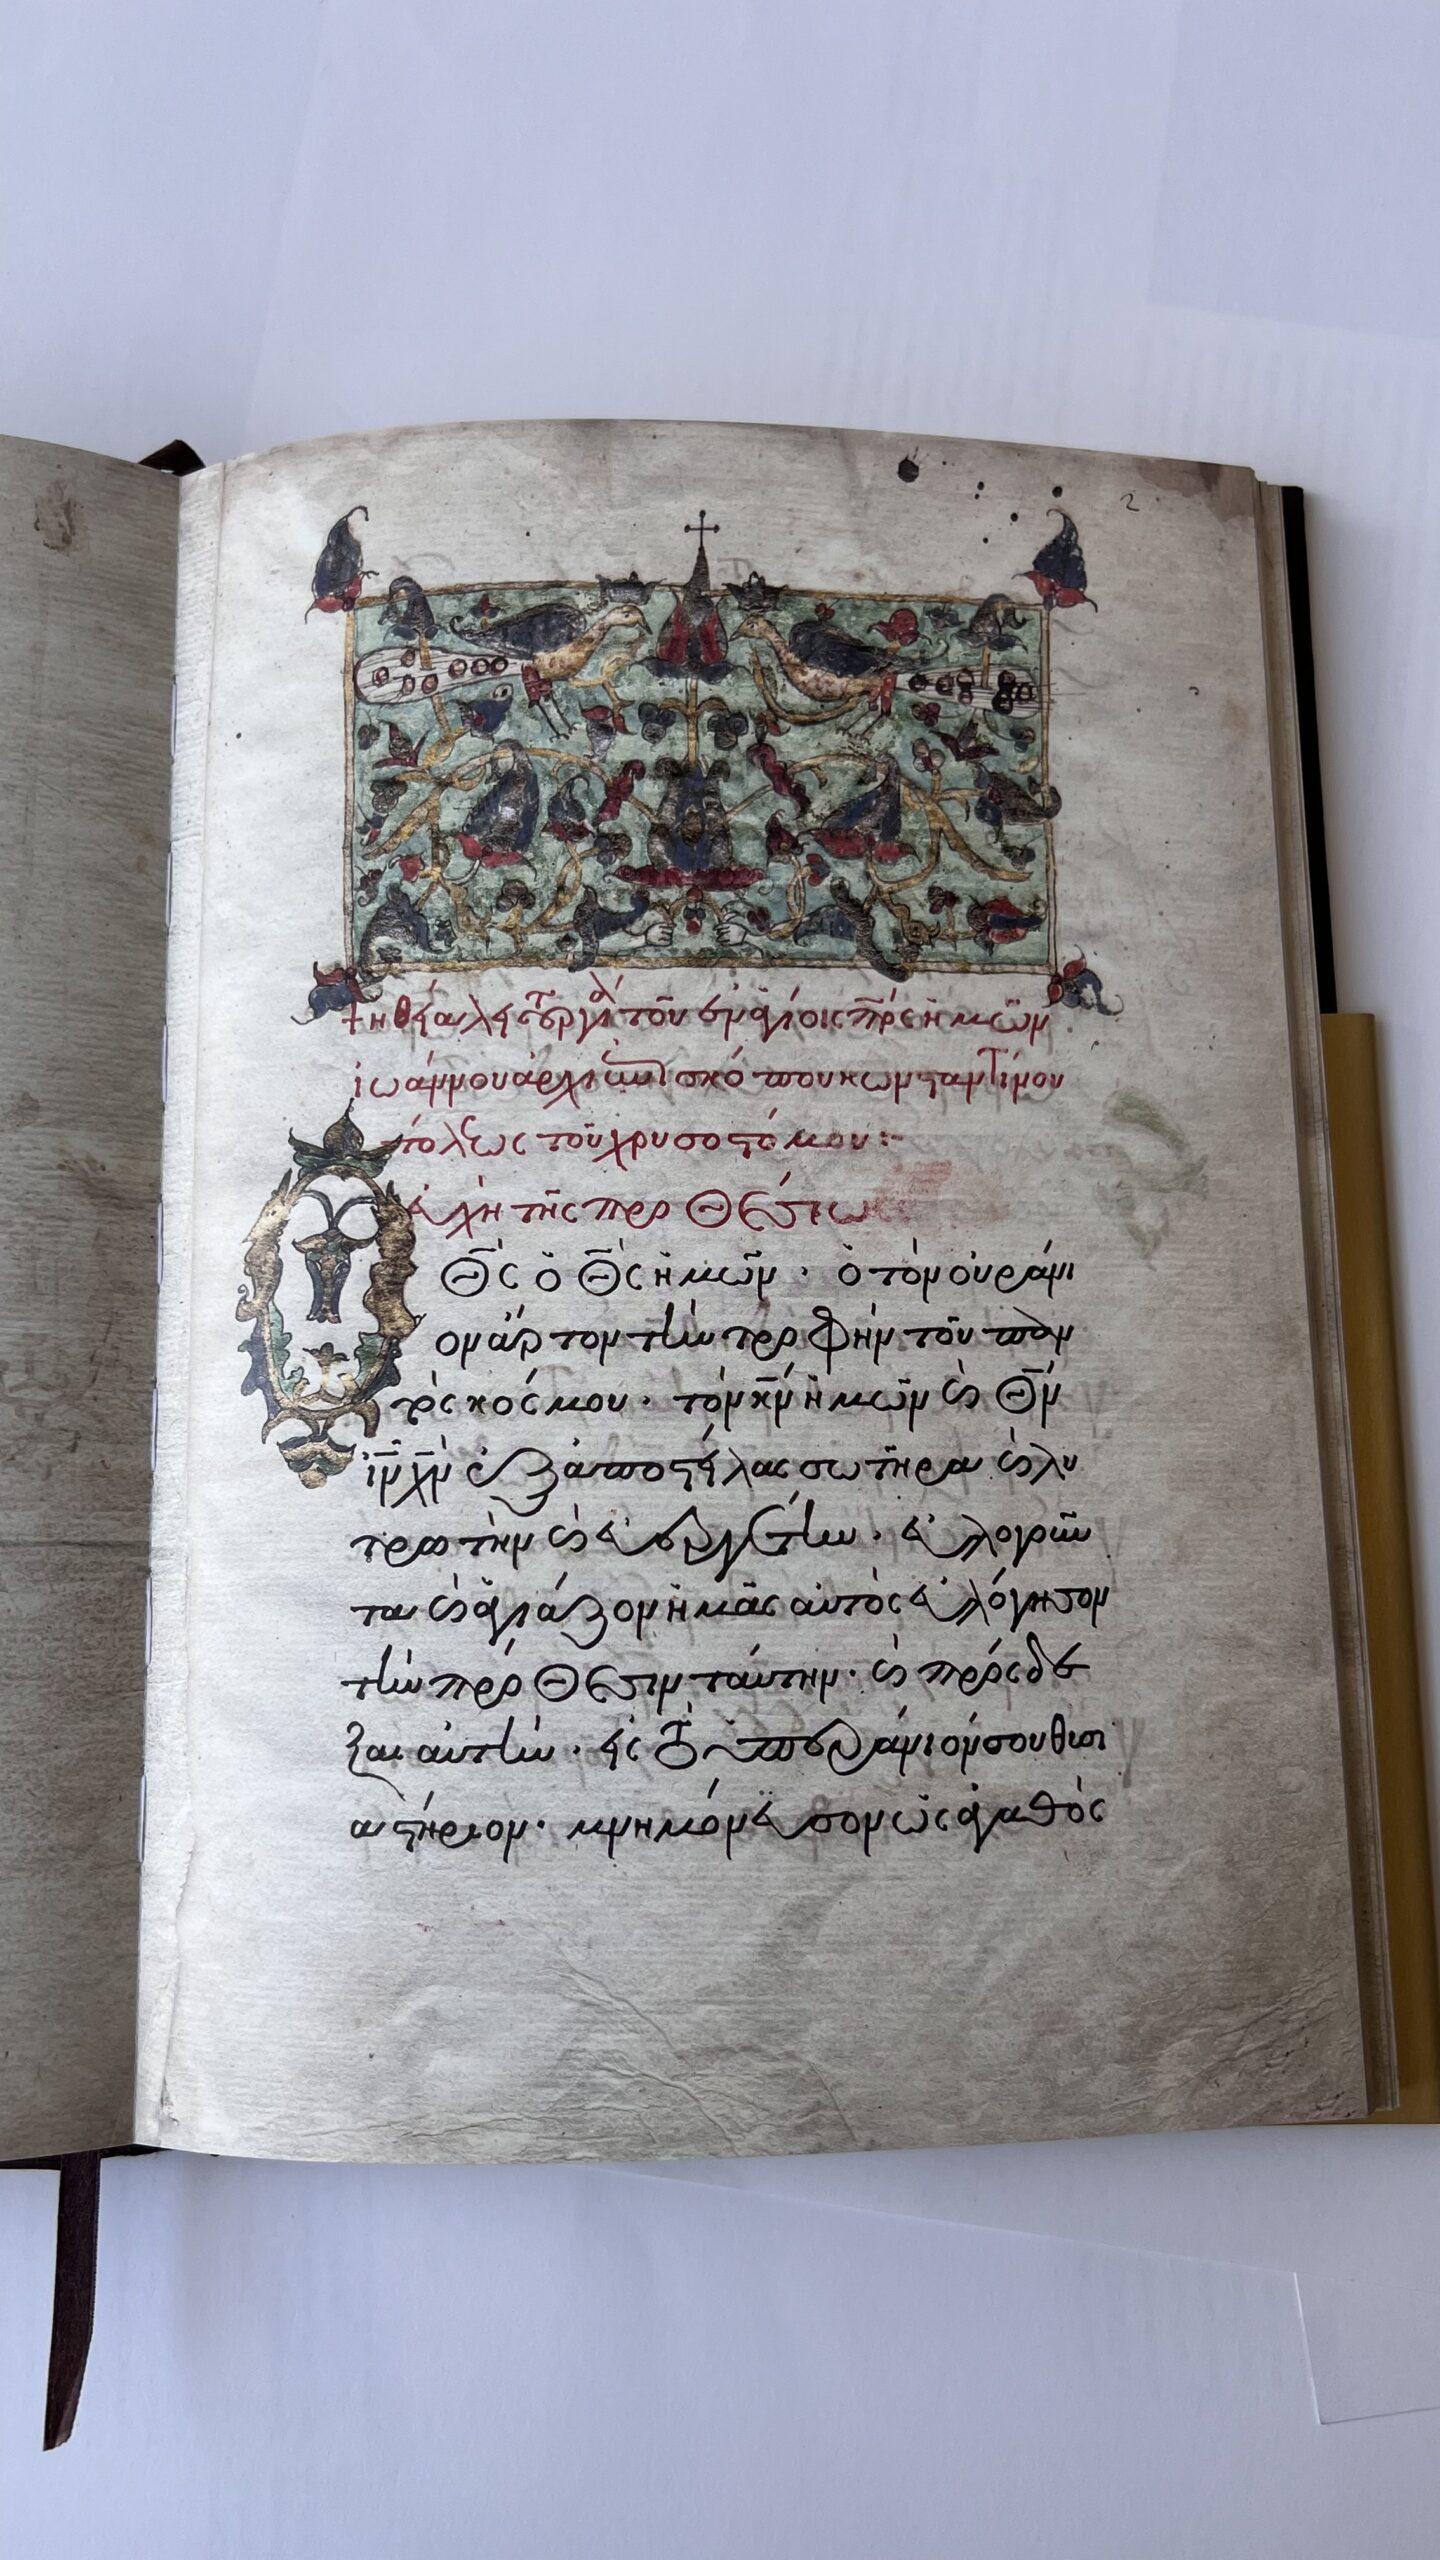 2
† ἡ θεία λειτουργία τοῦ ἐν ἁγίοις πρς ἡμῶν
ἰωάννου ἀρχιεπισκόπου κωνσταντίνου
πόλεως τοῦ χρυσοστόμου :-
εὐχὴ τῆς προθέσεως
Ὁ Θς ὁ Θς ἡμῶν · ὁ τὸν οὐράνι
ον ἄρτον τὴν τροφὴν τοῦ παν
τὸς κόσμου · τὸν κν ἡμῶν καὶ Θν
ιν χν ἐξαποστείλας σωτῆρα καὶ λυ
τρωτὴν καὶ εὐεργέτην · εὐλογοῦν
τα καὶ ἁγιάζον ἡμᾶς αὐτὸς εὐλόγησον
τὴν πρόθεσιν ταύτην · καὶ πρόσδε
ξαι αὐτὴν · εἰς τὸ ὑπερουράνιόν σου θυσι
αστήριον · μνημόνευσον ὡς ἀγαθὸς